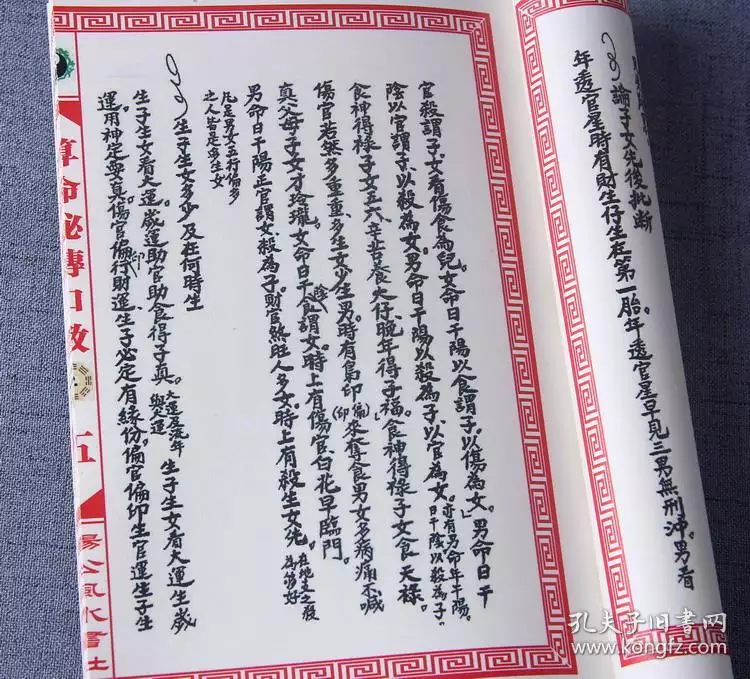 論子女先後批斷
年透官星時有財生仔生在第一胎。年透官星早見三男無刑沖。男看
官殺謂子女看傷食為兒。女命日干陽以食謂子。以傷為女。」男命日干
陰以官謂子以殺為女。男命日干陽以殺為子以官為女。亦有男命年干陽。日干陰以殺為子。
食神得祿子女五六。辛苦養大仔。晚年得子福。食神得祿子女食天祿。
傷官若然多重重、多生女少生男。時有梟印(偏印)來奪食男女多病痛不喊
真父母子女才玲瓏。女命日干陰食謂女。時上有傷官、白花早臨門。
男命日干陽正官謂女殺為子財官煞旺人多女。時上有殺生女先。在地生之殺為第好
凡是男女五行偏多
之人皆定多生女
生子生女多少及在何時生
生子生女看大運。歲運助官助食得子真。大運及流年與大運 生子生女看大運生歲
運用神定與真。傷官偏印行財運生子必定有緣份。偏官偏印生官運生子生
算命秘傳口訣
五
楊公風水書社
孔夫子旧书网
www.kongfz.com